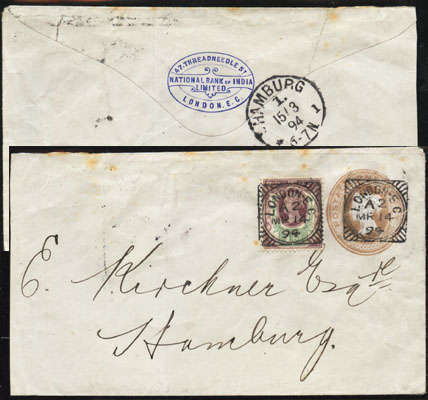 47. THREADNEEDLE ST
NATIONAL BANK OF INDIA
LIMITED.
LONDON. E.C.
HAMBURG
1.
15/3
94
6-7N 1
LONDON.E.C.
A2
MR 14
94
LONDON.E.C.
A2
MR 14
94
E. Kirchner Esqre
Hamburg.